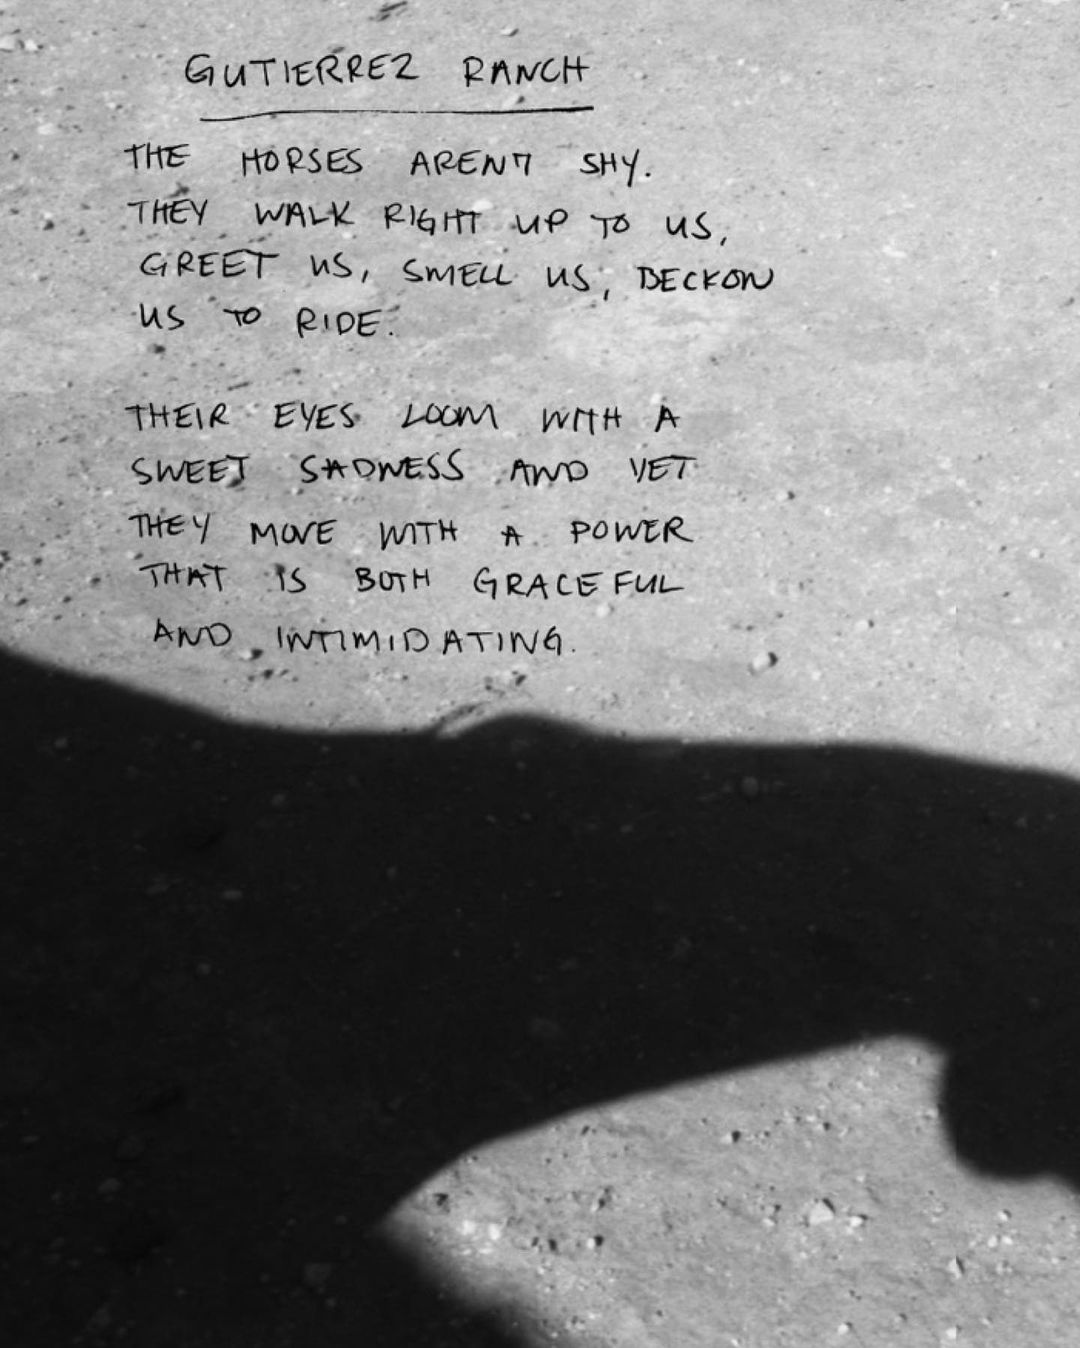 GUTIERREZ RANCH
THE HORSES AREN'T SHY.
THEY WALK RIGHT UP TO US,
GREET US, SMELL US, BECKON
US TO RIDE.
THEIR EYES LOOM WITH A
SWEET SADNESS AND YET
THEY MOVE WITH A POWER
THAT IS BOTH GRACEFUL
AND INTIMIDATING.